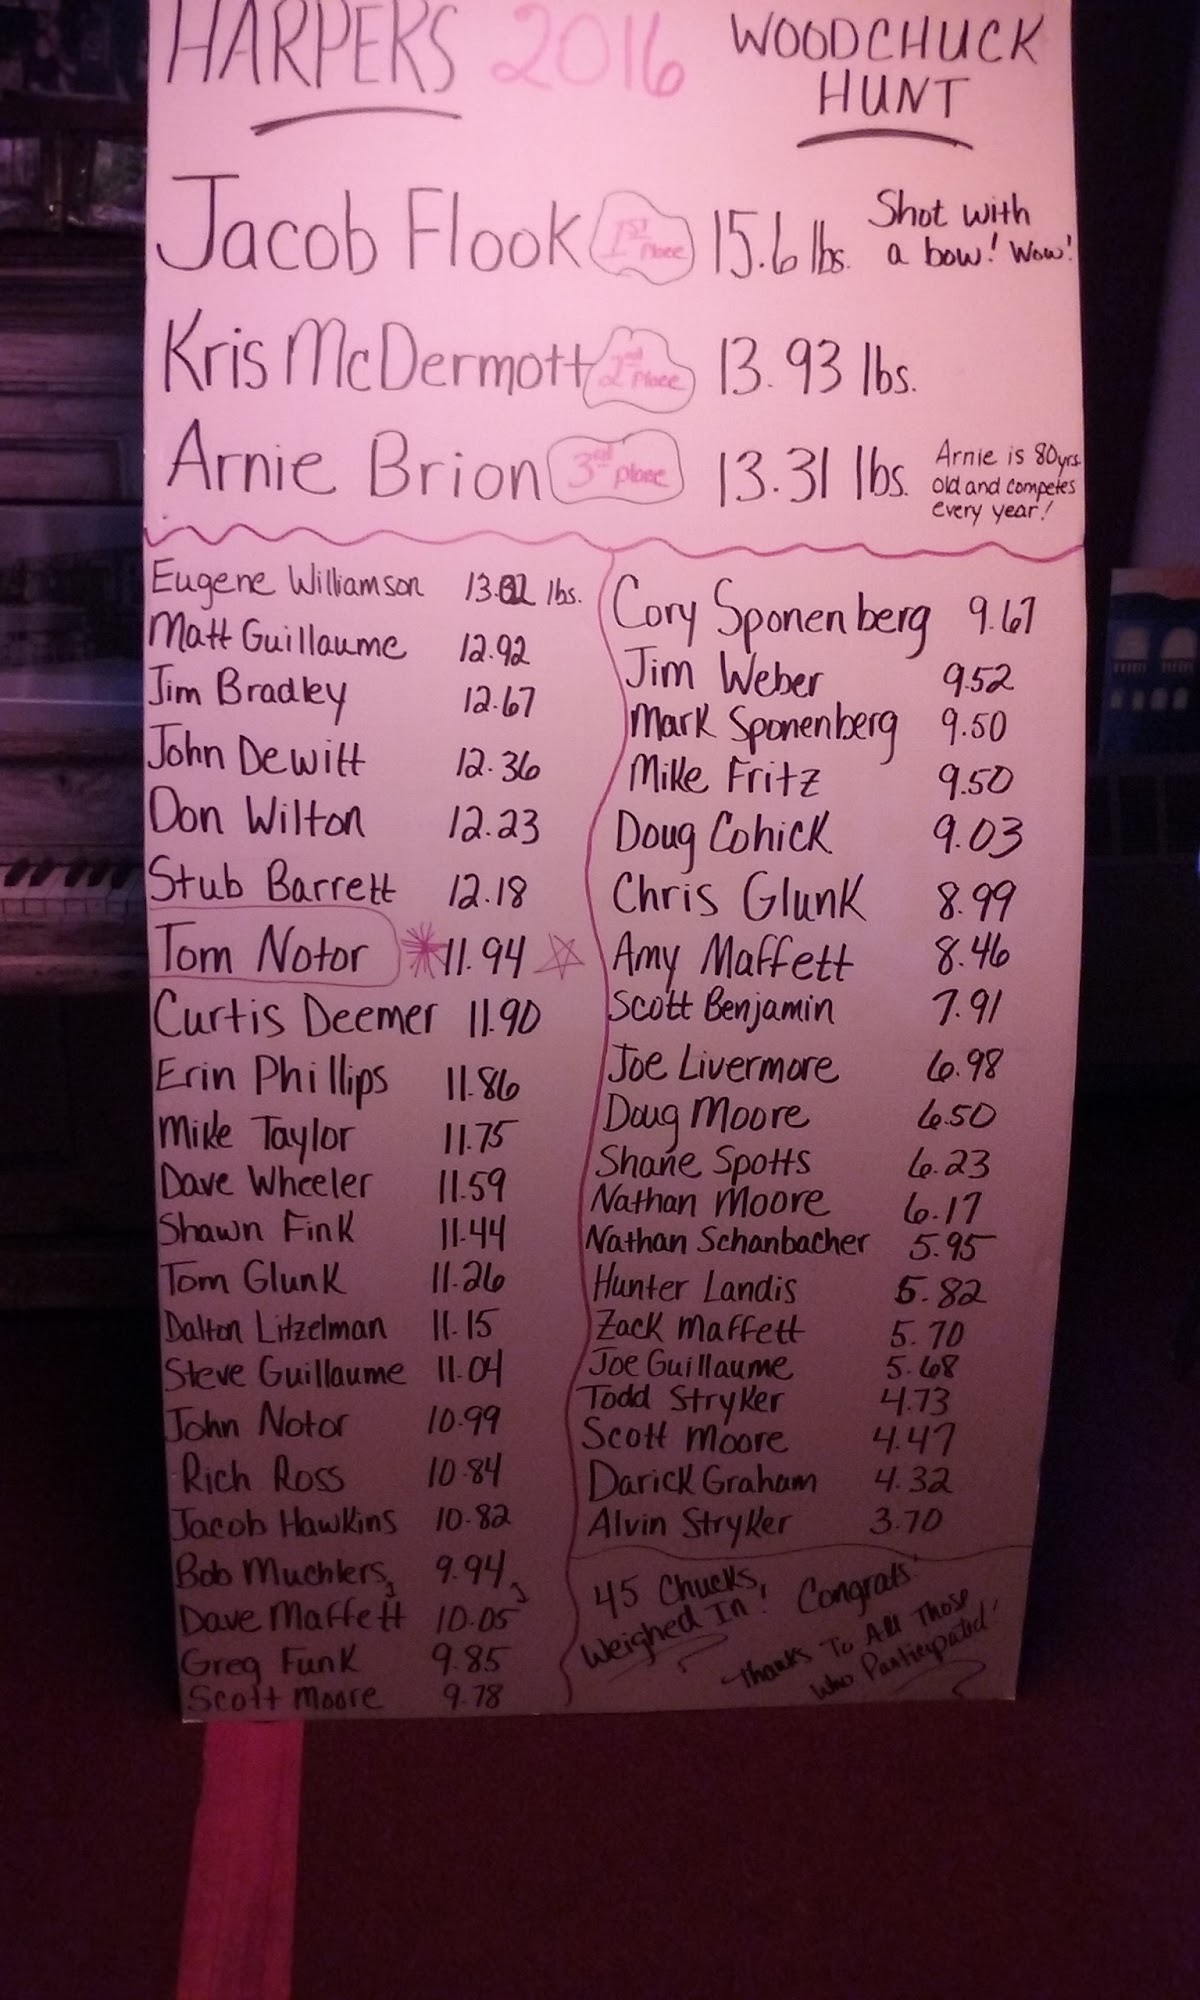 HARPERS 2016 WOODCHUCK
HUNT
Jacob Flook 1ST Place 15.6 lbs. Shot with
a bow! Wow!
Kris McDermott 2nd Place 13.93 lbs.
Arnie Brion 3rd place 13.31 lbs. Arnie is 80yrs.
old and competes
every year!
Eugene Williamson lbs.
Matt Guillaume 12.92
Jim Bradley 12.67
John Dewitt 12.36
Don Wilton 12.23
Stub Barrett 12.18
Tom Notor 11.94
Curtis Deemer 11.90
Erin Phillips 11.86
Mike Taylor 11.75
Dave Wheeler 11.59
Shawn Fink 11.44
Tom Glunk 11.26
Dalton Litzelman 11.15
Steve Guillaume 11.04
John Notor 10.99
Rich Ross 10.84
Jacob Hawkins 10.82
Bob Muchlers 9.94
Dave Maffett 10.05
Greg Funk 9.85
Scott Moore 9.78
Cory Sponenberg 9.67
Jim Weber 9.52
Mark Sponenberg 9.50
Mike Fritz 9.50
Doug Cohick 9.03
Chris Glunk 8.99
Amy Maffett 8.46
Scott Benjamin 7.91
Joe Livermore 6.98
Doug Moore 6.50
Shane Spotts 6.23
Nathan Moore 6.17
Nathan Schanbacher 5.95
Hunter Landis 5.82
Zack Maffett 5.70
Joe Guillaume 5.68
Todd Stryker 4.73
Scott Moore 4.47
Darick Graham 4.32
Alvin Stryker 3.70
45 Chucks,
Weighed In! Congrats!
Thanks To All Those
Who Participated!